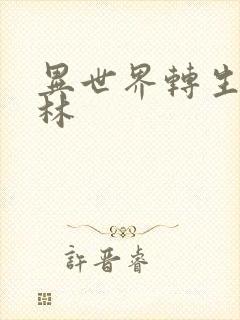 異世界轉生
林
許晋睿